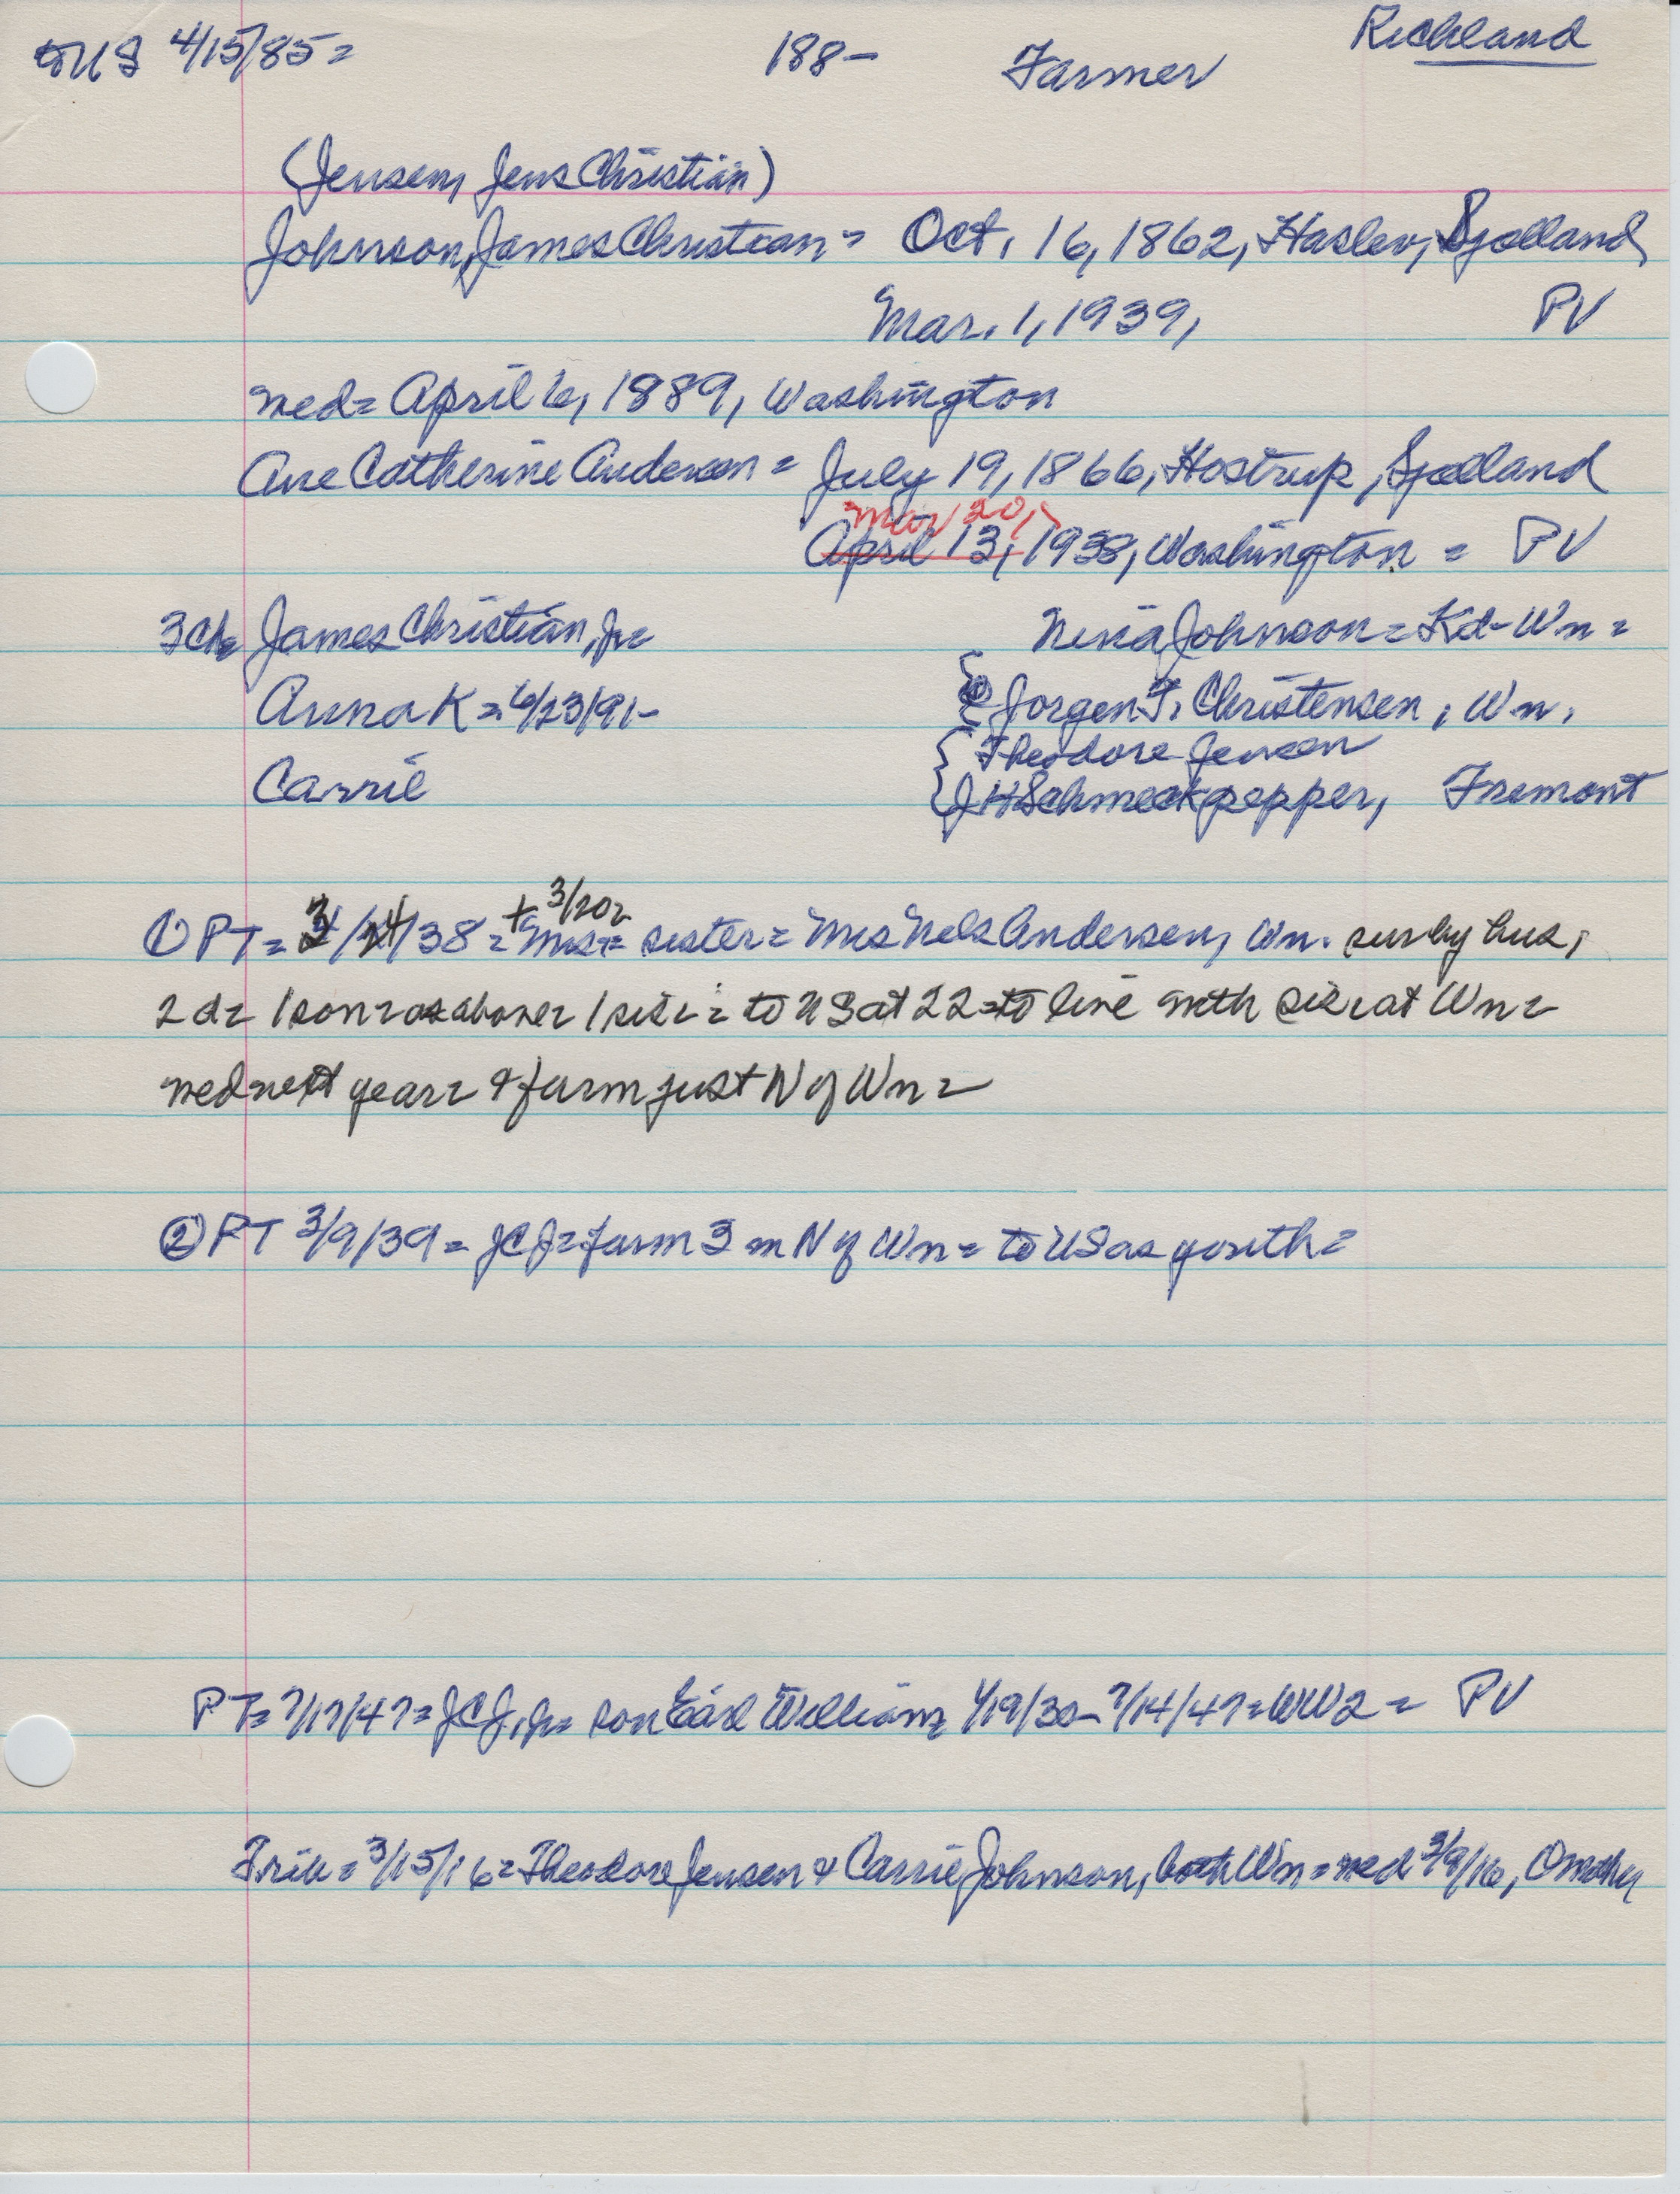 4/15/85 = 188- Farmer Richland
(Jensen, Jens Christian)
Johnson, James Christian = Oct. 16, 1862, Haslev, Sjolland
Mar. 1, 1939, PV
med = April 6, 1889, Washington
Ane Catherine Andersen = July 19, 1866, Hostrup, Sjolland
Mar 20,
April 13, 1938, Washington = PV
3 ch = James Christian, Jr = Nina Johnson = Kd - Wn =
Anna K = 6/23/91- Jorgen T. Christensen, Wn.
Theodore Jensen
Carrie J H Schmeckpepper, Fremont
+ 3/20 =
① PT = 3/24/38 = Mrs = sister = Mrs Nels Andersen, Wn. sur by hus,
2 d = 1 son = as above = 1 sis = to US at 22 = to live with sis at Wn =
med next year = & farm just N of Wn =
② PT 3/9/39 = JCJ = farm 3 m N of Wn = to US as youth =
PT = 7/17/47 = JCJ, Jr = son Earl William = 1/19/30 - 7/14/47 = WW2 = PV
3/15/16 = Theodore Jensen & Carrie Johnson, both Wn = med 3/9/16,